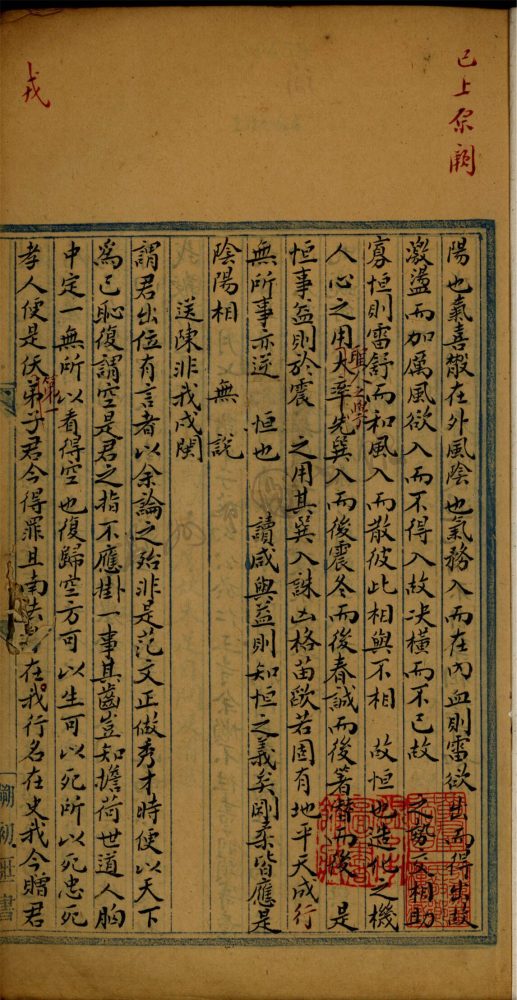 已上原闕
陽也氣喜散在外風陰也氣務入而在內血則雷欲出而得出故
激盪而加厲風欲入而不得入故决橫而不已故 之勢交相助
寡恒則雷舒而和風入而散彼此相與不相 故恒也造化之機
人心之用大率先巽入而後震冬而後春誠而後著潛而後 是
恒事益則於震 之用其巽入誅凶格苗歐若固有地平天成行
無所事亦逆 恒也 讀咸與益則知恒之義矣剛柔皆應是
陰陽相 無 說
送陳非我戍閩
謂君出位有言者以余論之殆非是范文正做秀才時便以天下
為己恥復謂空是君之指不應掛一事具齒豈知擔荷世道人胸
中定一無所以看得空也復歸空方可以生可以死所以死忠死
孝人便是伏弟子君今得罪且南去 在我行名在史我今贈君
第一
戎